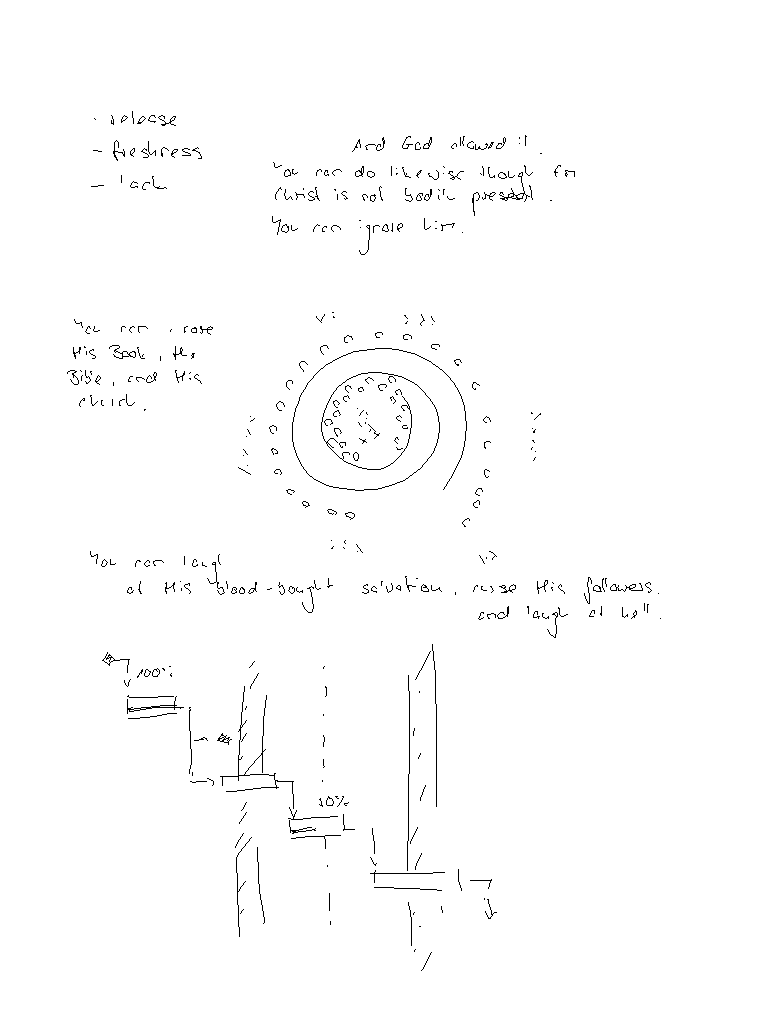 · release
- freshness
- lack
And God allowed it.
You can do likewise though for
Christ is not bodily present.
You can ignore him.
You can ignore
His Book, the
Bible, and His
church.
You can laugh
at His blood-bought salvation, curse His followers.
and laugh at hell.
100%
10%